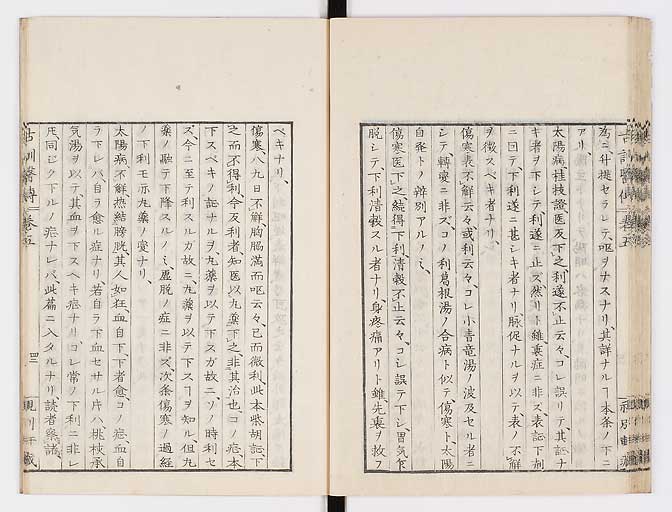 為ニ升提セラレテ、呕ヲナスナリ、其詳ナルヿ本条ノ下ニ
アリ
太陽病、桂枝證医反下之利遂不止云々、コレ誤リテ其証ナ
キ者ヲ下シテ利遂ニ止ズ然リト雖裏症ニ非ズ表証下剤
ニ因テ、下利遂ニ甚シキ者ナリ、脉促ナルヲ以テ、表ノ不解
ヲ徴スベキ者ナリ、
傷寒表不解云々或利云々、コレ小青竜湯ノ波及セル者ニ
シテ、轉變ニ非ズ、コノ利葛根湯ノ合病ト似テ傷寒ト、太陽
自発トノ辨別アルノミ、
傷寒医下之続得下利清穀不止云々、コレ誤テ下シ、胃気
脱シテ、下利清穀スル者ナリ、身疼痛アリト雖、先裏ヲ救フ
ベキナリ、
傷寒八九日不解胸脇満而呕云々、已而微利此本柴胡証下
之而不得利今反利者知医以丸薬下之非其治也、コノ症本
下スベキノ証ナルヲ、丸薬ヲ以テ下スガ故ニ、ソノ時利セ
ズ、今ニ至テ利スルガ故ニ、丸薬ヲ以テ下スヿヲ知ル但丸
薬ノ融テ下降スルノミ虚脱ノ症ニ非ズ、次条傷寒ノ過経
ノ下利モ亦丸薬ノ変ナリ、
太陽病不解熱結膀胱、其人如狂血自下、下者愈、コノ症血自
ラ下レバ、自ラ愈ル症ナリ若自ラ下血セサル片ハ桃核承
気湯ヲ以テ其血ヲ下スベキ症ナリコレ常ノ下利ニ非レ
𪜈同ジク下ルノ症ナレバ、此篇ニ入タルナリ、読者察諸、
古訓醫傳 巻五